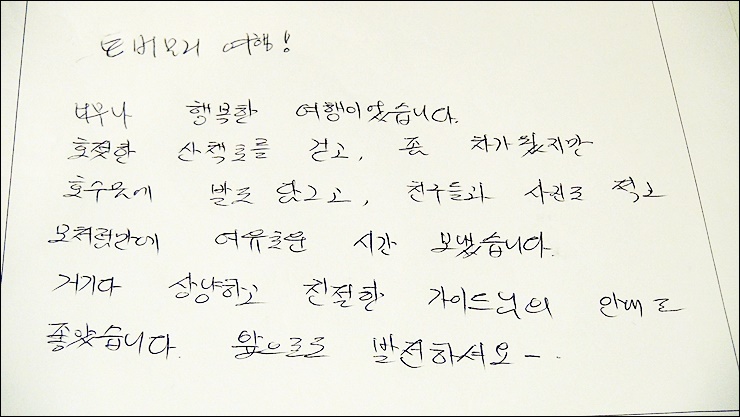 토버모리 여행!
너무나 행복한 여행이었습니다.
호젓한 산책로를 걷고, 좀 차가웠지만
호수물에 발도 담그고, 친구들과 사진도 찍고
모처럼만에 여유로운 시간 보냈습니다.
거기다 상냥하고 친절한 가이드님의 안내도
좋았습니다. 앞으로도 발전하셔요-.